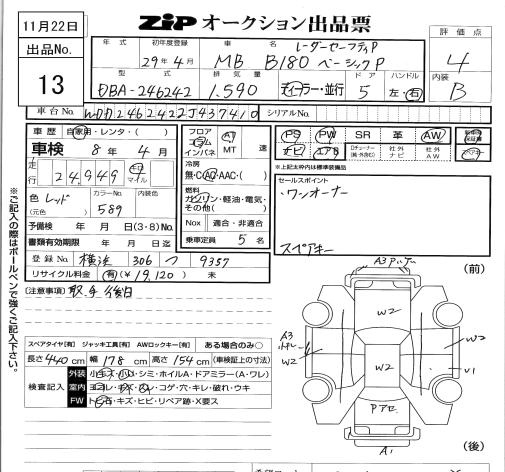 11月22日
出品No.
13
ZIP オークション出品票
評価点
4
内装
B
年式 初年度登録 車名
29年4月 MB B180 レーダーセーフティP ベーシックP
型式 排気量 ドア ハンドル
DBA-246242 1.590 ディーラー・並行 5 左・右
車台No. WDD2462422J437410 シリアルNo.
車歴 自家用・レンタ・( )
車検 8年4月
走行 24,949 キロ マイル
色 レッド (元色) カラーNo. 589 内装色
予備検 年 月 日(3・8)No.
書類有効期限 年 月 日迄
登録No. 横浜 306 つ 9357
リサイクル料金 有(¥19,120) 未
フロア コラム インパネ
AT MT 速
冷房
無・C・AC・AAC・( )
燃料
ガソリン・軽油・電気・その他( )
Nox 適合・非適合
乗車定員 5 名
PS PW SR 革 AW
ナビ エアB 社外ナビ 社外AW
※上記太枠内は標準装備品
セールスポイント
・ワンオーナー
スペアキー
※ご記入の際はボールペンで強くご記入下さい。
(注意事項)
取、子後日
スペアタイヤ[有] ジャッキ工具[有] AWロックキー[有] ある場合のみ○
長さ440cm 幅178cm 高さ154cm (車検証上の寸法)
検査記入
外装 小キズ・小凹・シミ・ホイルA・ドアミラー(A・ワレ)
室内 ヨゴレ・キズ・スレ・コゲ・穴・キレ・破れ・ウキ
FW トビ石・キズ・ヒビ・リペア跡・X要ス
(前)
A3
W2
A3
W2
W2
W2
U1
Pアセ
A1
(後)